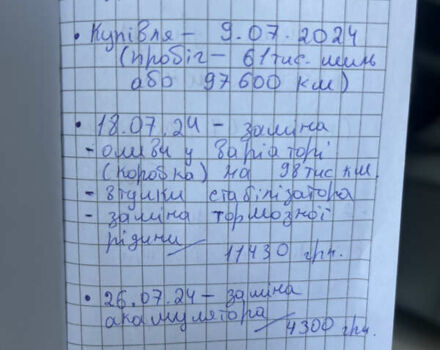 • Купівля - 9.07.2024
(пробіг - 61 тис. миль
або 97600 км)
• 18.07.24 - заміна
- оливи у варіаторі
(коробка) на 98 тис км
- втулки стабілізатора
- заміна тормозної
рідини
11430 грн.
• 26.07.24 - заміна
акамулятора
4300 грн.